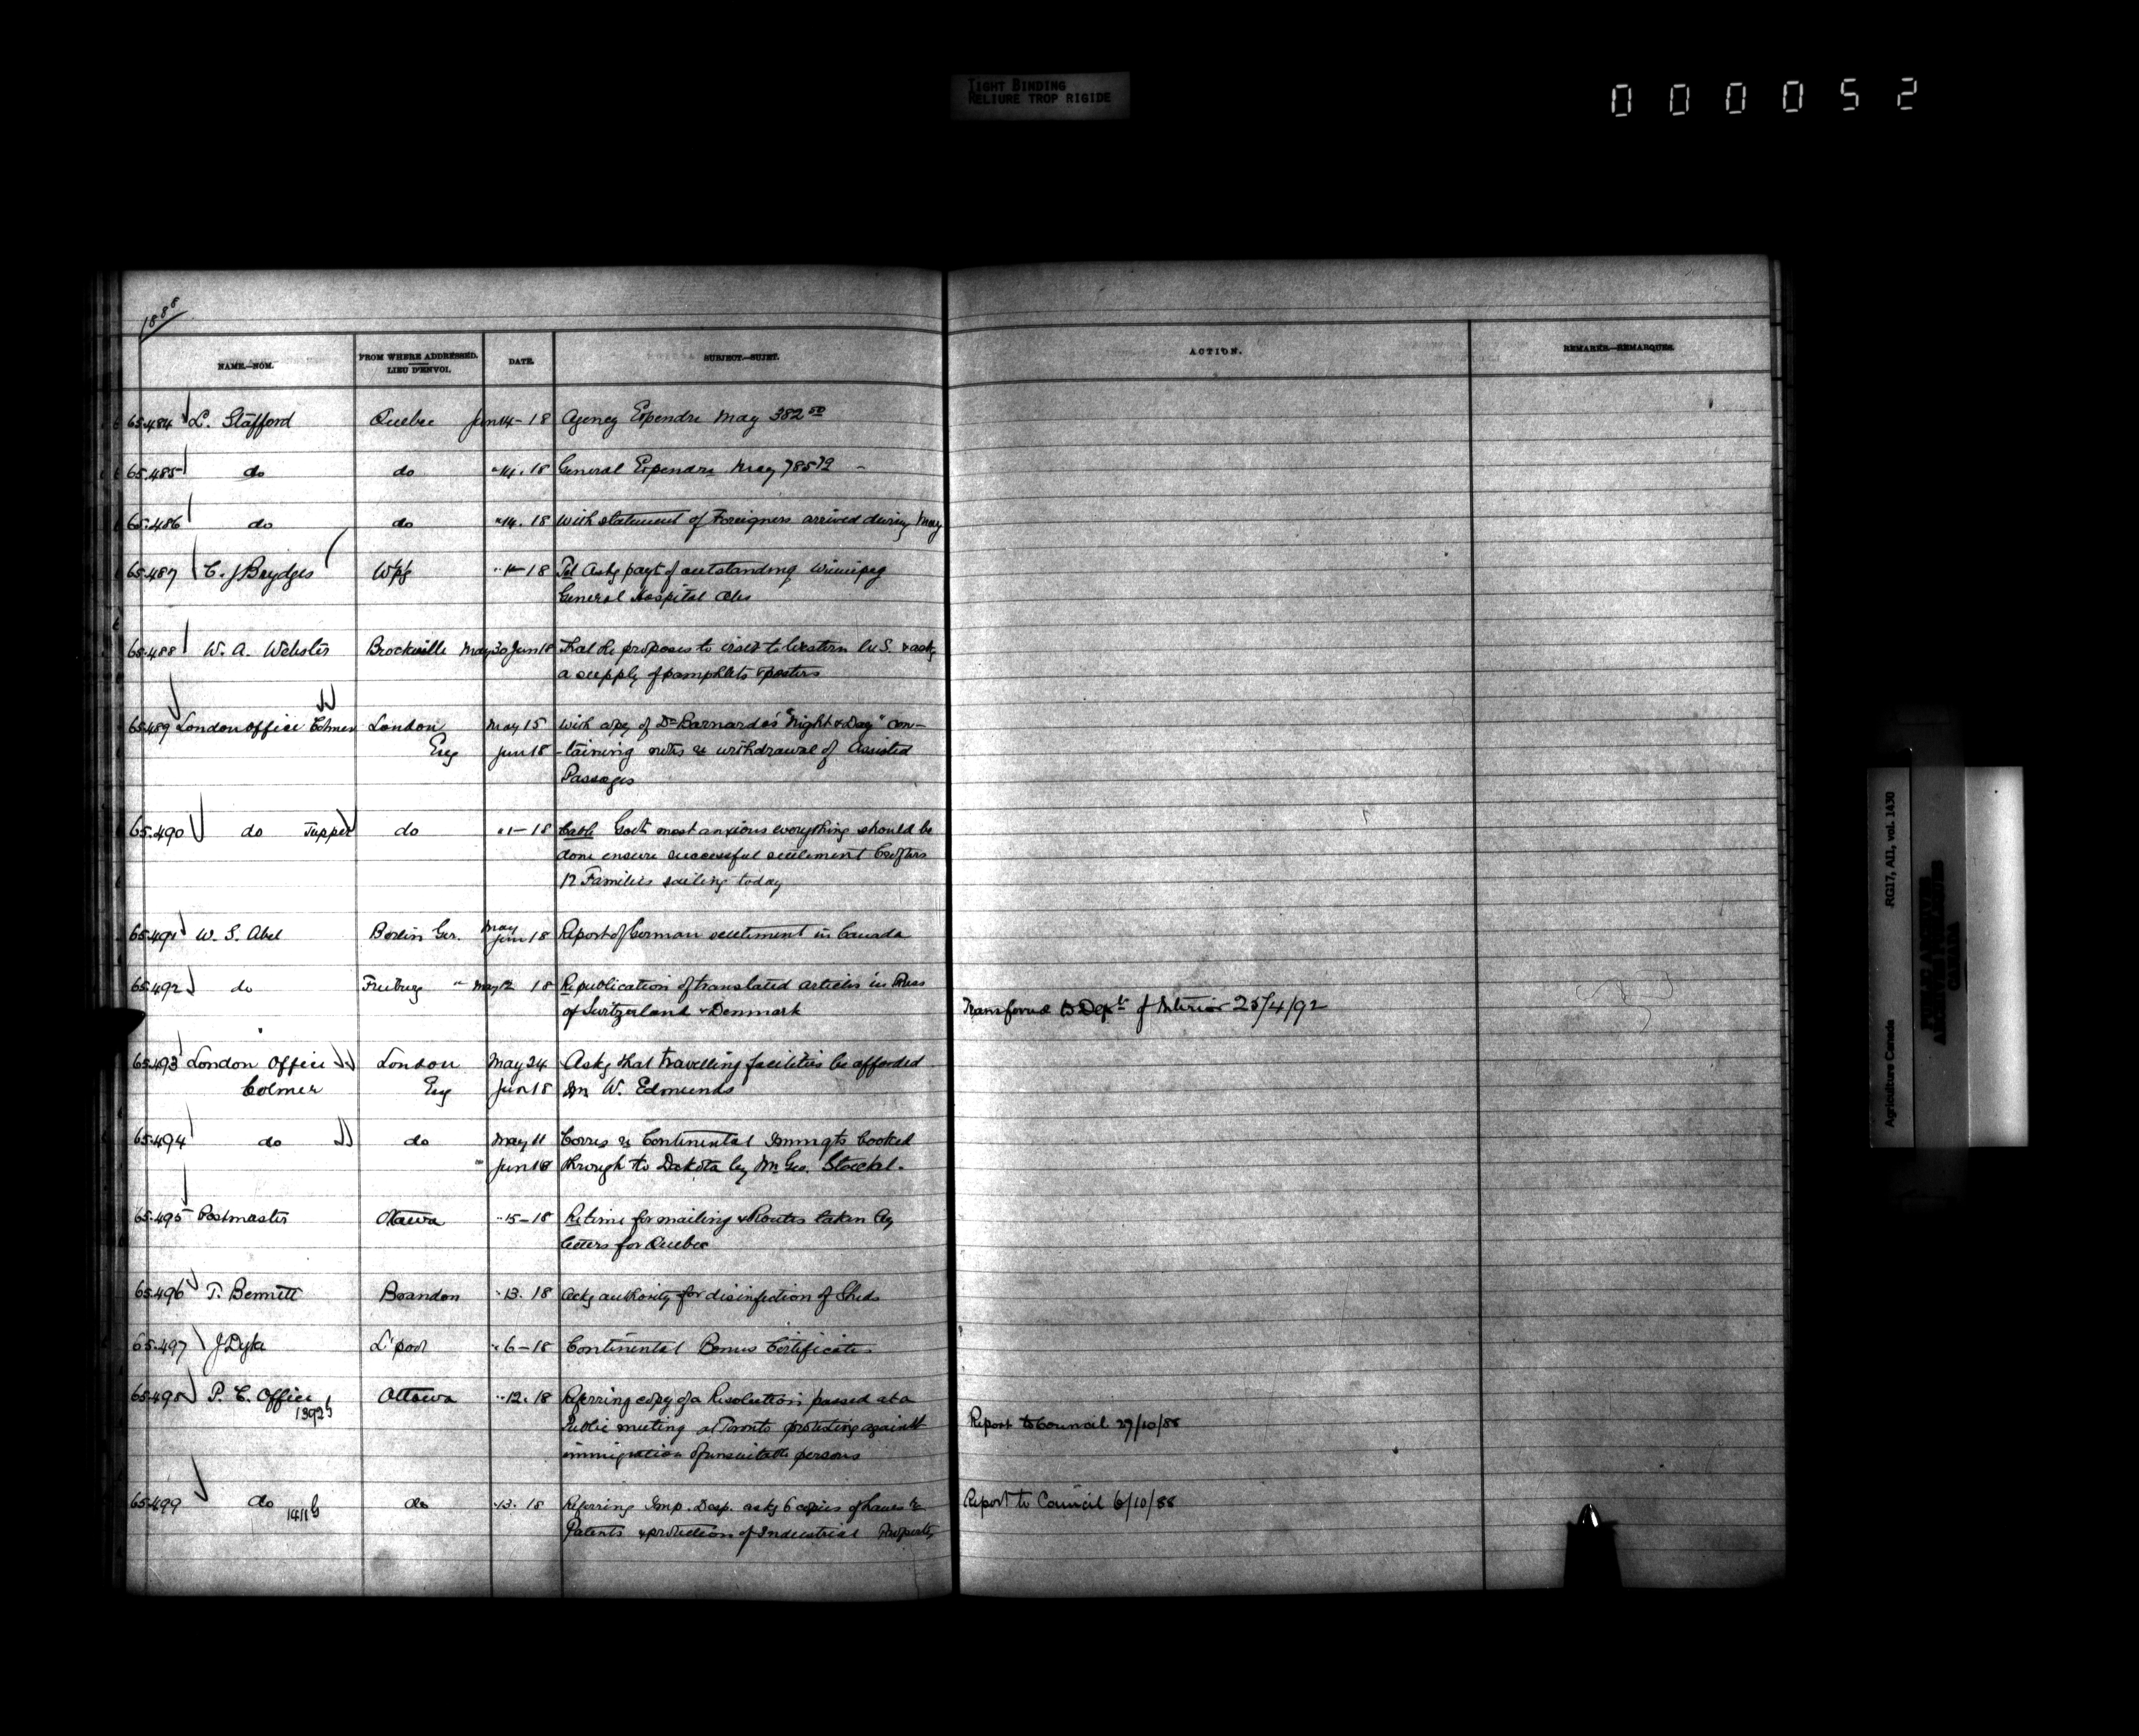 TIGHT BINDING
RELIURE TROP RIGIDE
000052
1888
NAME.—NOM. FROM WHERE ADDRESSED. LIEU D'ENVOI. DATE. SUBJECT.—SUJET. ACTION. REMARKS—REMARQUES.
65.484 L. Stafford Quebec Jun 14-18 Agency Expendre May 382 50
65.485 do do " 14. 18 General Expendre May 785 72
65.486 do do " 14. 18 With statement of Foreigners arrived during May
65.487 C. J Brydges Wpg 18 Tel Askg payt of outstanding Winnipeg
General Hospital a/cs
65.488 W. A. Webster Brockville May 30 Jun 18 That he proposes to visit to Western U.S. & askg
a supply of pamphlets & posters
65.489 London Office Colmer London May 15 With copy of Dr Barnardo's "Night & Day" con-
Eng Jun 18 -taining notes re withdrawal of Assisted
Passages
65.490 do Tupper do " 1-18 Cable Govt most anxious everything should be
done ensure successful settlement Crofters
12 Families sailing today
65.491 W. S. Abel Berlin Ger. May Jun 18 Report of German settlement in Canada
65.492 do Freiburg " May 12 18 Republication of translated articles in Press
of Switzerland & Denmark Transferred to Dept of Interior 25/4/92
65.493 London Office London May 24 Askg that travelling facilities be afforded
Colmer Eng Jun 18 Mr W. Edmunds
65.494 do do May 11 Corres re Continental Immigts booked
" Jun 18 through to Dakota by Mr Geo. Stoeckel.
65.495 Postmaster Ottawa " 15-18 Re time for mailing & Routes taken by
letters for Quebec
65.496 T. Bennett Brandon " 13. 18 Askg authority for disinfection of Sheds
65.497 J Dyke L'pool " 6-18 Continental Bonus Certificates
65.498 P. C. Office Ottawa " 12. 18 Referring copy of a Resolution passed at a
1392 G Public meeting at Toronto protesting against Report to Council 29/10/88
immigration of unsuitable persons
65.499 do do " 13. 18 Referring Imp. Desp. askg 6 copies of Laws re Report to Council 6/10/88
1411 G Patents & protection of Industrial Property
Agriculture Canada RG17, AII, vol. 1430
PUBLIC ARCHIVES
ARCHIVES PUBLIQUES
CANADA